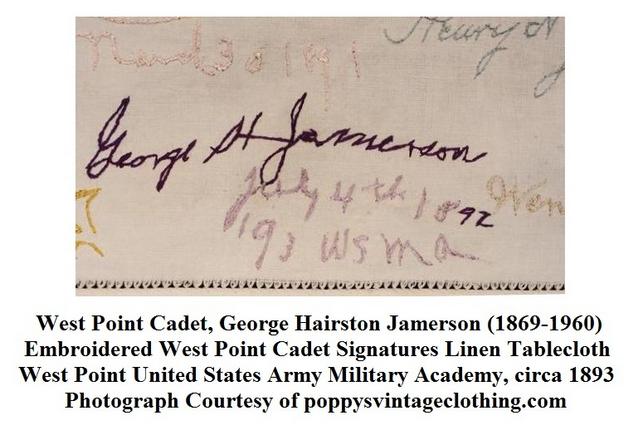 Henry N
George H Jamerson
July 4th 1892
'93 USMA
West Point Cadet, George Hairston Jamerson (1869-1960)
Embroidered West Point Cadet Signatures Linen Tablecloth
West Point United States Army Military Academy, circa 1893
Photograph Courtesy of poppysvintageclothing.com